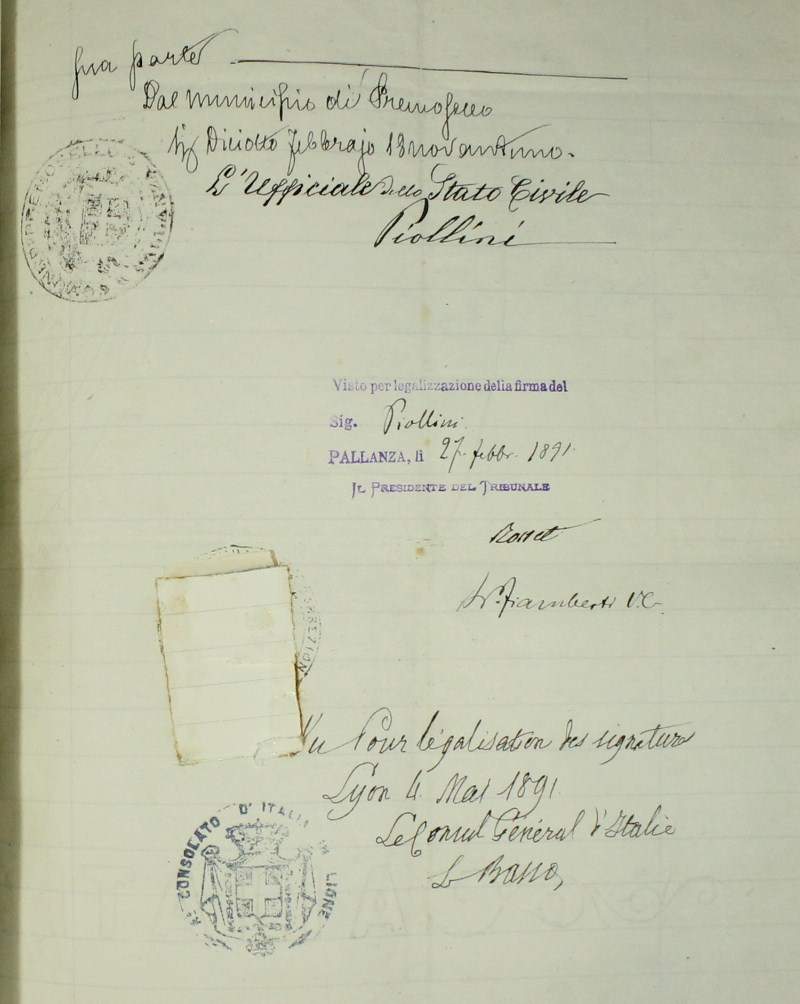 sua parte
Dal municipio di Premosello
li Diciotto febbrajo 18novantuno.
L'Ufficiale dello Stato Civile
Piollini
Visto per legalizzazione della firma del
Sig. Piollini
PALLANZA, li 27 febbr. 1891
IL PRESIDENTE DEL TRIBUNALE
Fiamberti V.C.
Vu Pour légalisation des signatures
Lyon 4 Mai 1891
Le Consul Général d'Italie
Basso
Rº CONSOLATO D'ITALIA IN LIONE